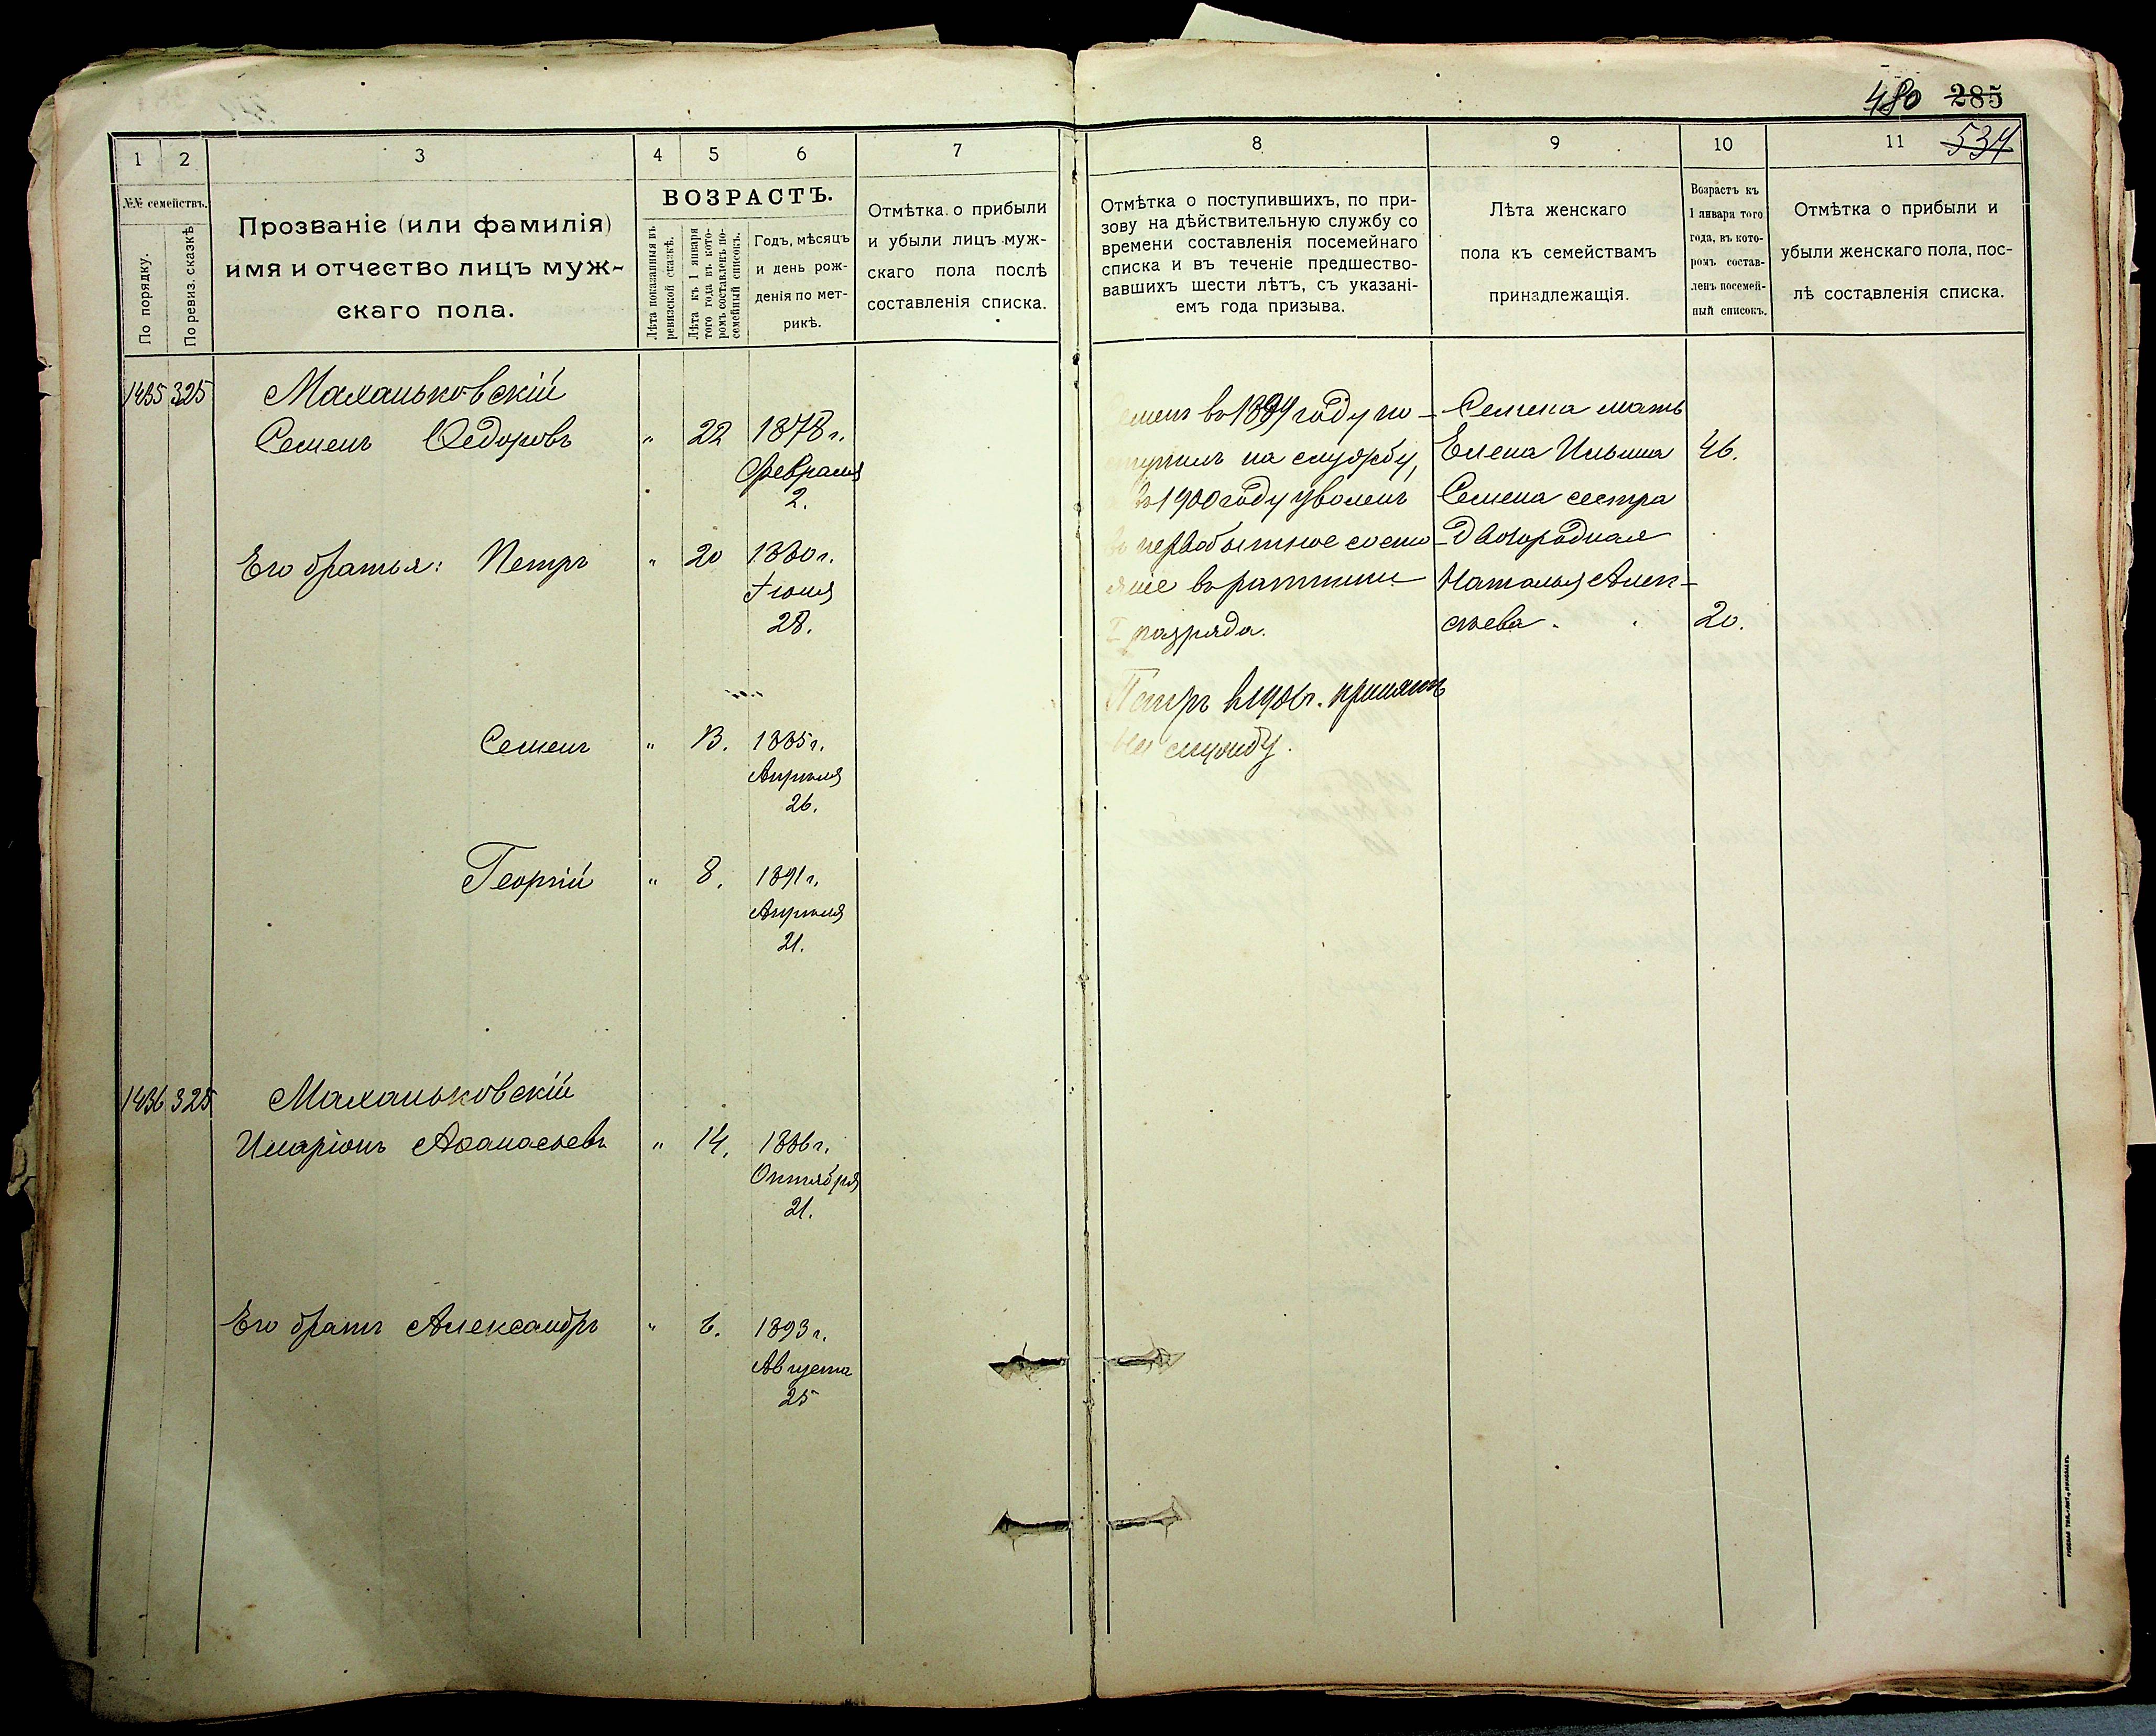 480 285
534
1 2 3 4 5 6 7
№№ семействъ.
По порядку.
По ревиз. сказкѣ
Прозваніе (или фамилія)
имя и отчество лицъ муж-
скаго пола.
ВОЗРАСТЪ.
Лѣта показанныя въ
ревизской сказкѣ.
Лѣта къ 1 января
того года въ кото-
ромъ составленъ по-
семейный списокъ.
Годъ, мѣсяцъ
и день рож-
денія по мет-
рикѣ.
Отмѣтка о прибыли
и убыли лицъ муж-
скаго пола послѣ
составленія списка.
8 9 10 11
Отмѣтка о поступившихъ, по при-
зову на дѣйствительную службу со
времени составленія посемейнаго
списка и въ теченіе предшество-
вавшихъ шести лѣтъ, съ указані-
емъ года призыва.
Лѣта женскаго
пола къ семействамъ
принадлежащія.
Возрастъ къ
1 января того
года, въ кото-
ромъ состав-
ленъ посемей-
ный списокъ.
Отмѣтка о прибыли и
убыли женскаго пола, пос-
лѣ составленія списка.
1435 325 Маханьковскій
Семенъ Ѳедоровъ " 22 1878 г.
Февраля
2.
Его братья: Петръ " 20 1880 г.
Іюня
28.
Семенъ " 13. 1885 г.
Апрѣля
26.
Георгій " 8. 1891 г.
Апрѣля
21.
1436 325 Маханьковскій
Иларіонъ Аѳанасьевъ " 14. 1886 г.
Октября
21.
Его братъ Александръ " 6. 1893 г.
Августа
25
Семенъ въ 1899 году по-
ступилъ на службу,
а въ 1900 году уволенъ
въ первобытное состо-
яніе въ ратники
I разряда.
Петръ въ г. принятъ
на службу.
Семена мать
Елена Ильина 46.
Семена сестра
двоюродная
Наталья Алек-
сѣева. 20.